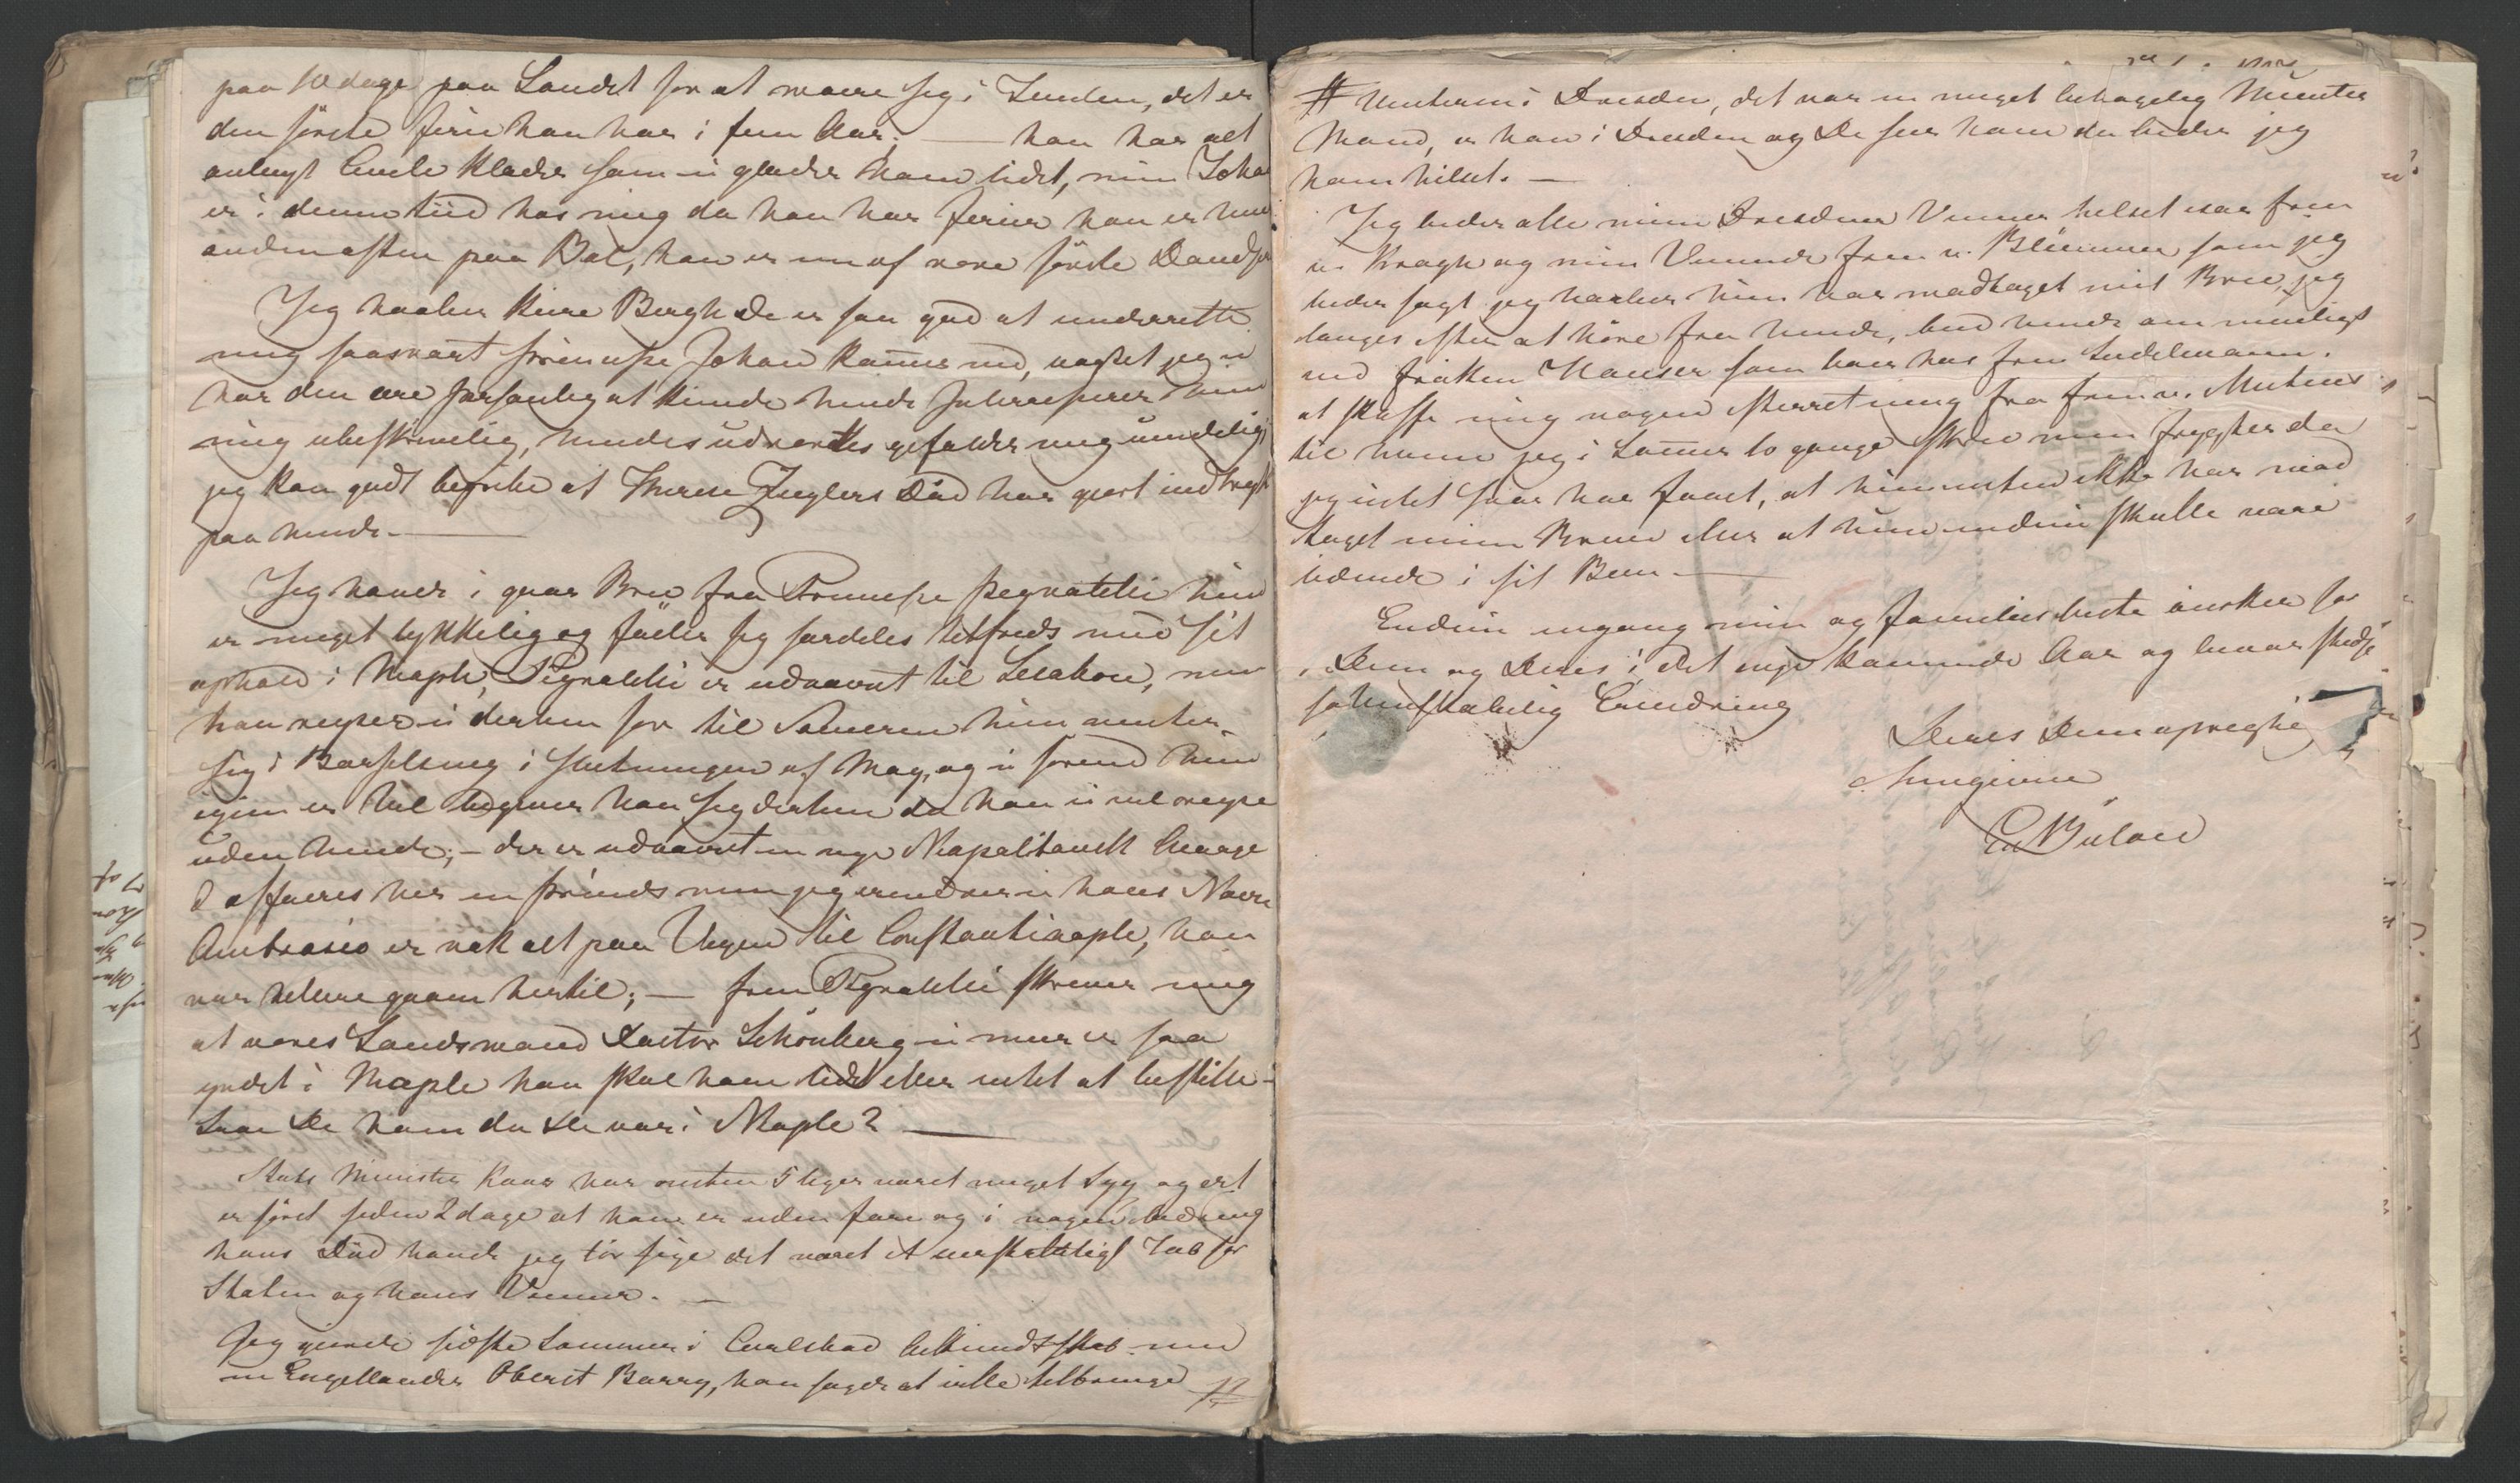 paa 10 dage paa Landet for at more sig i Juulen, det er
den første ferie han har i fem Aar; — han har alt
anlagt Civile Klæder som ei glæder ham lidt, min Joha
er i denne tiid hos mig da han har ferier han er hver
anden aften paa Bal, han er en af vore første Dandse
Jeg haaber kiere Bergh De er saa god at underrette
mig saasnart Prinsesse Johan kommer ned, uagtet jeg ei
har den ære personlig at kiende hende Interesserer hun
mig ubeskrivelig, hendes udvortes gefalder mig uendelig
jeg kan godt begribe at Therese Zieglers Død har giort indtryk
paa hende. —
Jeg haver i gaar Brev fra Prinsesse Pegnatelli hun
er meget lykkelig og føeler sig særdeles tilfreds med sit
ophold i Naple, Pignatelli er udnævnt til Lissabon, men
han reyser ei dertil før til Sommeren hun venter
sig i Barselseng i Slutningen af May, og ei førend hun
igien er vel begiver han sig dertil da han ei vil reyse
uden hende; – der er udnævnt en nye Napolitansk Charge
d affaires her en Prinds men jeg erindrer ei hans Navn
Ambrosio er nok alt paa Veyen til Constantinople, han
var hellere gaaen hertil; — fru Pignatelli skriver mig
at vores Landsmand Doctor Schønberg ei mere er saa
yndet i Naple han skal have lidet eller intet at bestille –
Saae De ham da De var i Naple? —
Stats Minister Kaas har næsten 5 Uger været meget Syg og det
er først siden 2 dage at han er uden fare og i nogen bedring
hans Død havde jeg tør sige det været et uerstatteligt Tab for
Staten og hans Venner. —
Jeg giorde sidste Sommer i Carlsbad bekiendtskab med
en Engellænder Oberst Barry, han sagde at ville tilbringe #
# Vinteren i Dresden, det var en meget behagelig Munter
Mand, er han i Dresden og De seer ham da beder jeg
ham hilset. —
Jeg beder alle mine Dresdner Venner hilset især fru
v. Kragh og min Veninde fru v. Blümner som jeg
beder sagt jeg haaber hun har modtaget mit Brev, jeg
længes efter at høre fra hende, bed hende om mueligt
ved frøken Hauser som boer hos fru Sudelmann
at skaffe mig nogen efterretning fra fru v. Mutius
til hvem jeg i Sommer to gange skrev men frygter da
jeg intet Svar har faaet, at hun enten ikke har mod
taget mine Breve eller at hun endnu skulle være
lidende i sit Been. —
Endnu engang min og families beste ønsker for
Dem og Deres i det nye kommende Aar og bevar stedse
i venskabelig Erindring
Deres Dem oprigtig
hengivne
Bülow